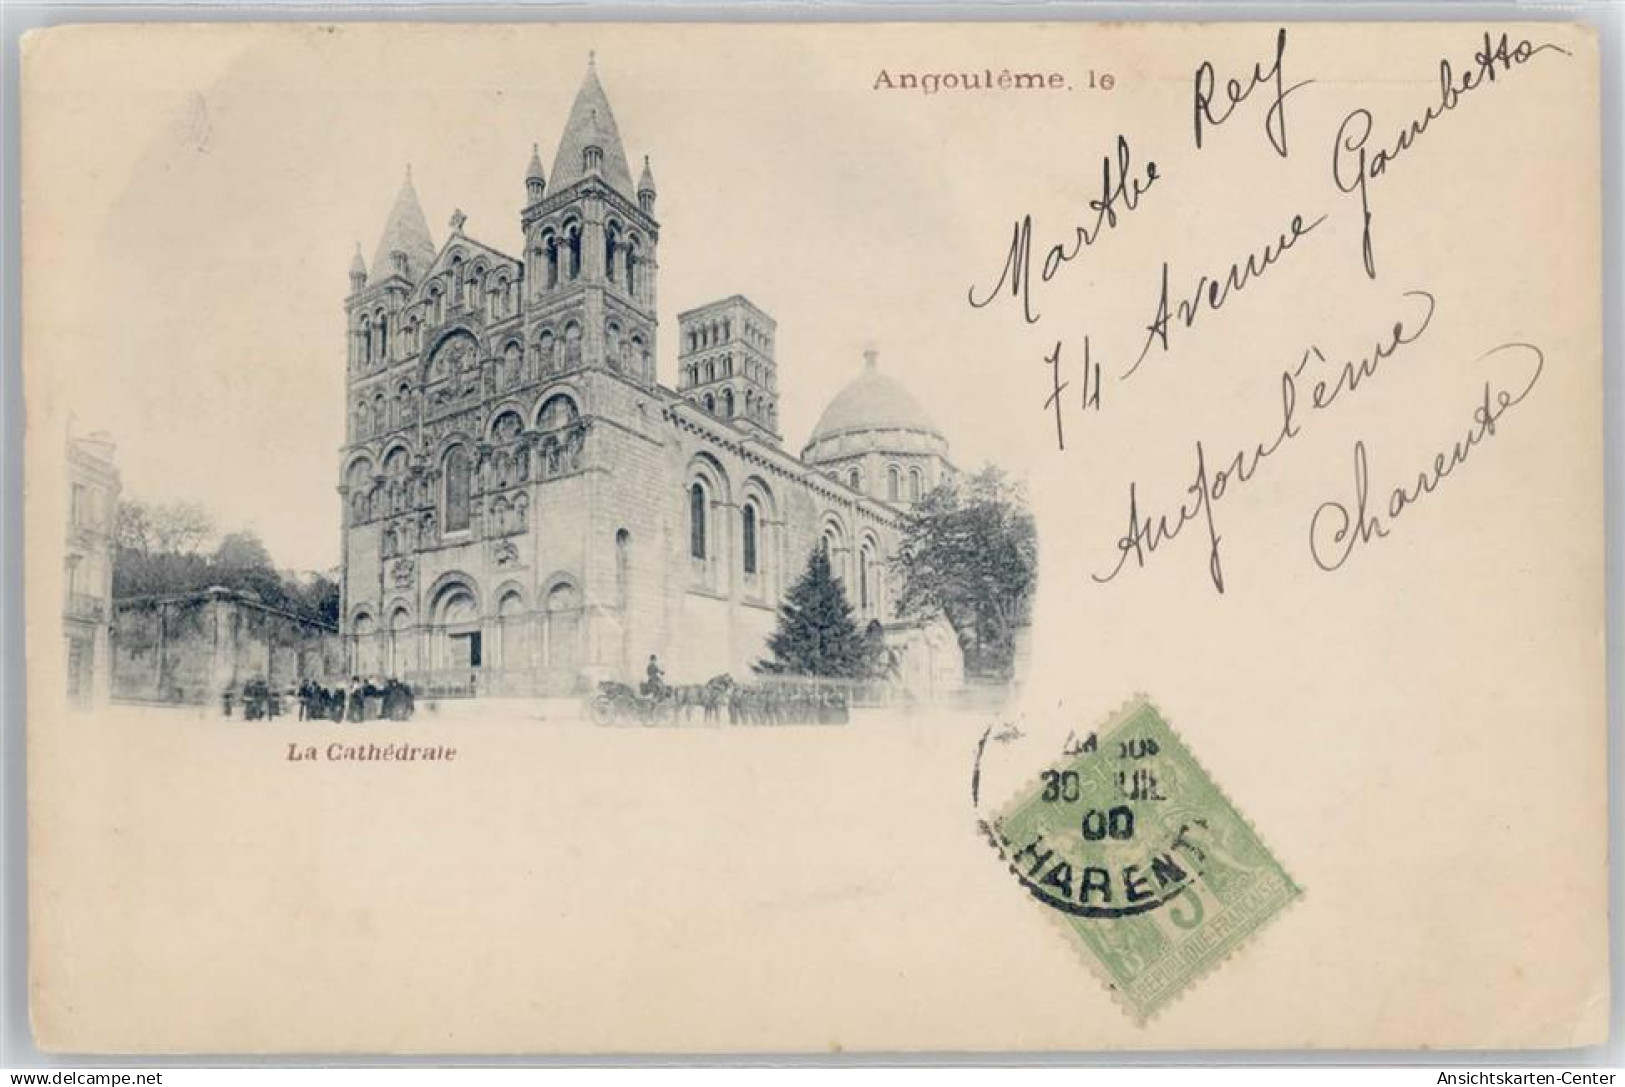 Angoulême, le
Marthe Rey
74 Avenue Gambetta
Angoul'ème
Charente
La Cathédrale
30 JUIL
00
CHARENTE
5
RÉPUBLIQUE FRANÇAISE
delcampe.net
Ansichtskarten-Center